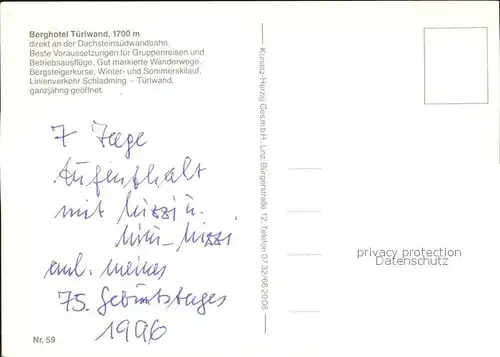 Berghotel Türlwand, 1700 m
direkt an der Dachsteinsüdwandbahn.
Beste Voraussetzungen für Gruppenreisen und
Betriebsausflüge. Gut markierte Wanderwege.
Bergsteigerkurse, Winter- und Sommerskilauf,
Linienverkehr Schladming – Türlwand,
ganzjährig geöffnet.
7 Tage
Aufenthalt
mit Mizzi u.
Mini-Mizzi
anl. meines
75. Geburtstages
1996
Nr. 59
Kunasz-Herzig Ges.m.b.H. Linz, Bürgerstraße 12, Telefon 07 32/66 20 08
privacy protection
Datenschutz